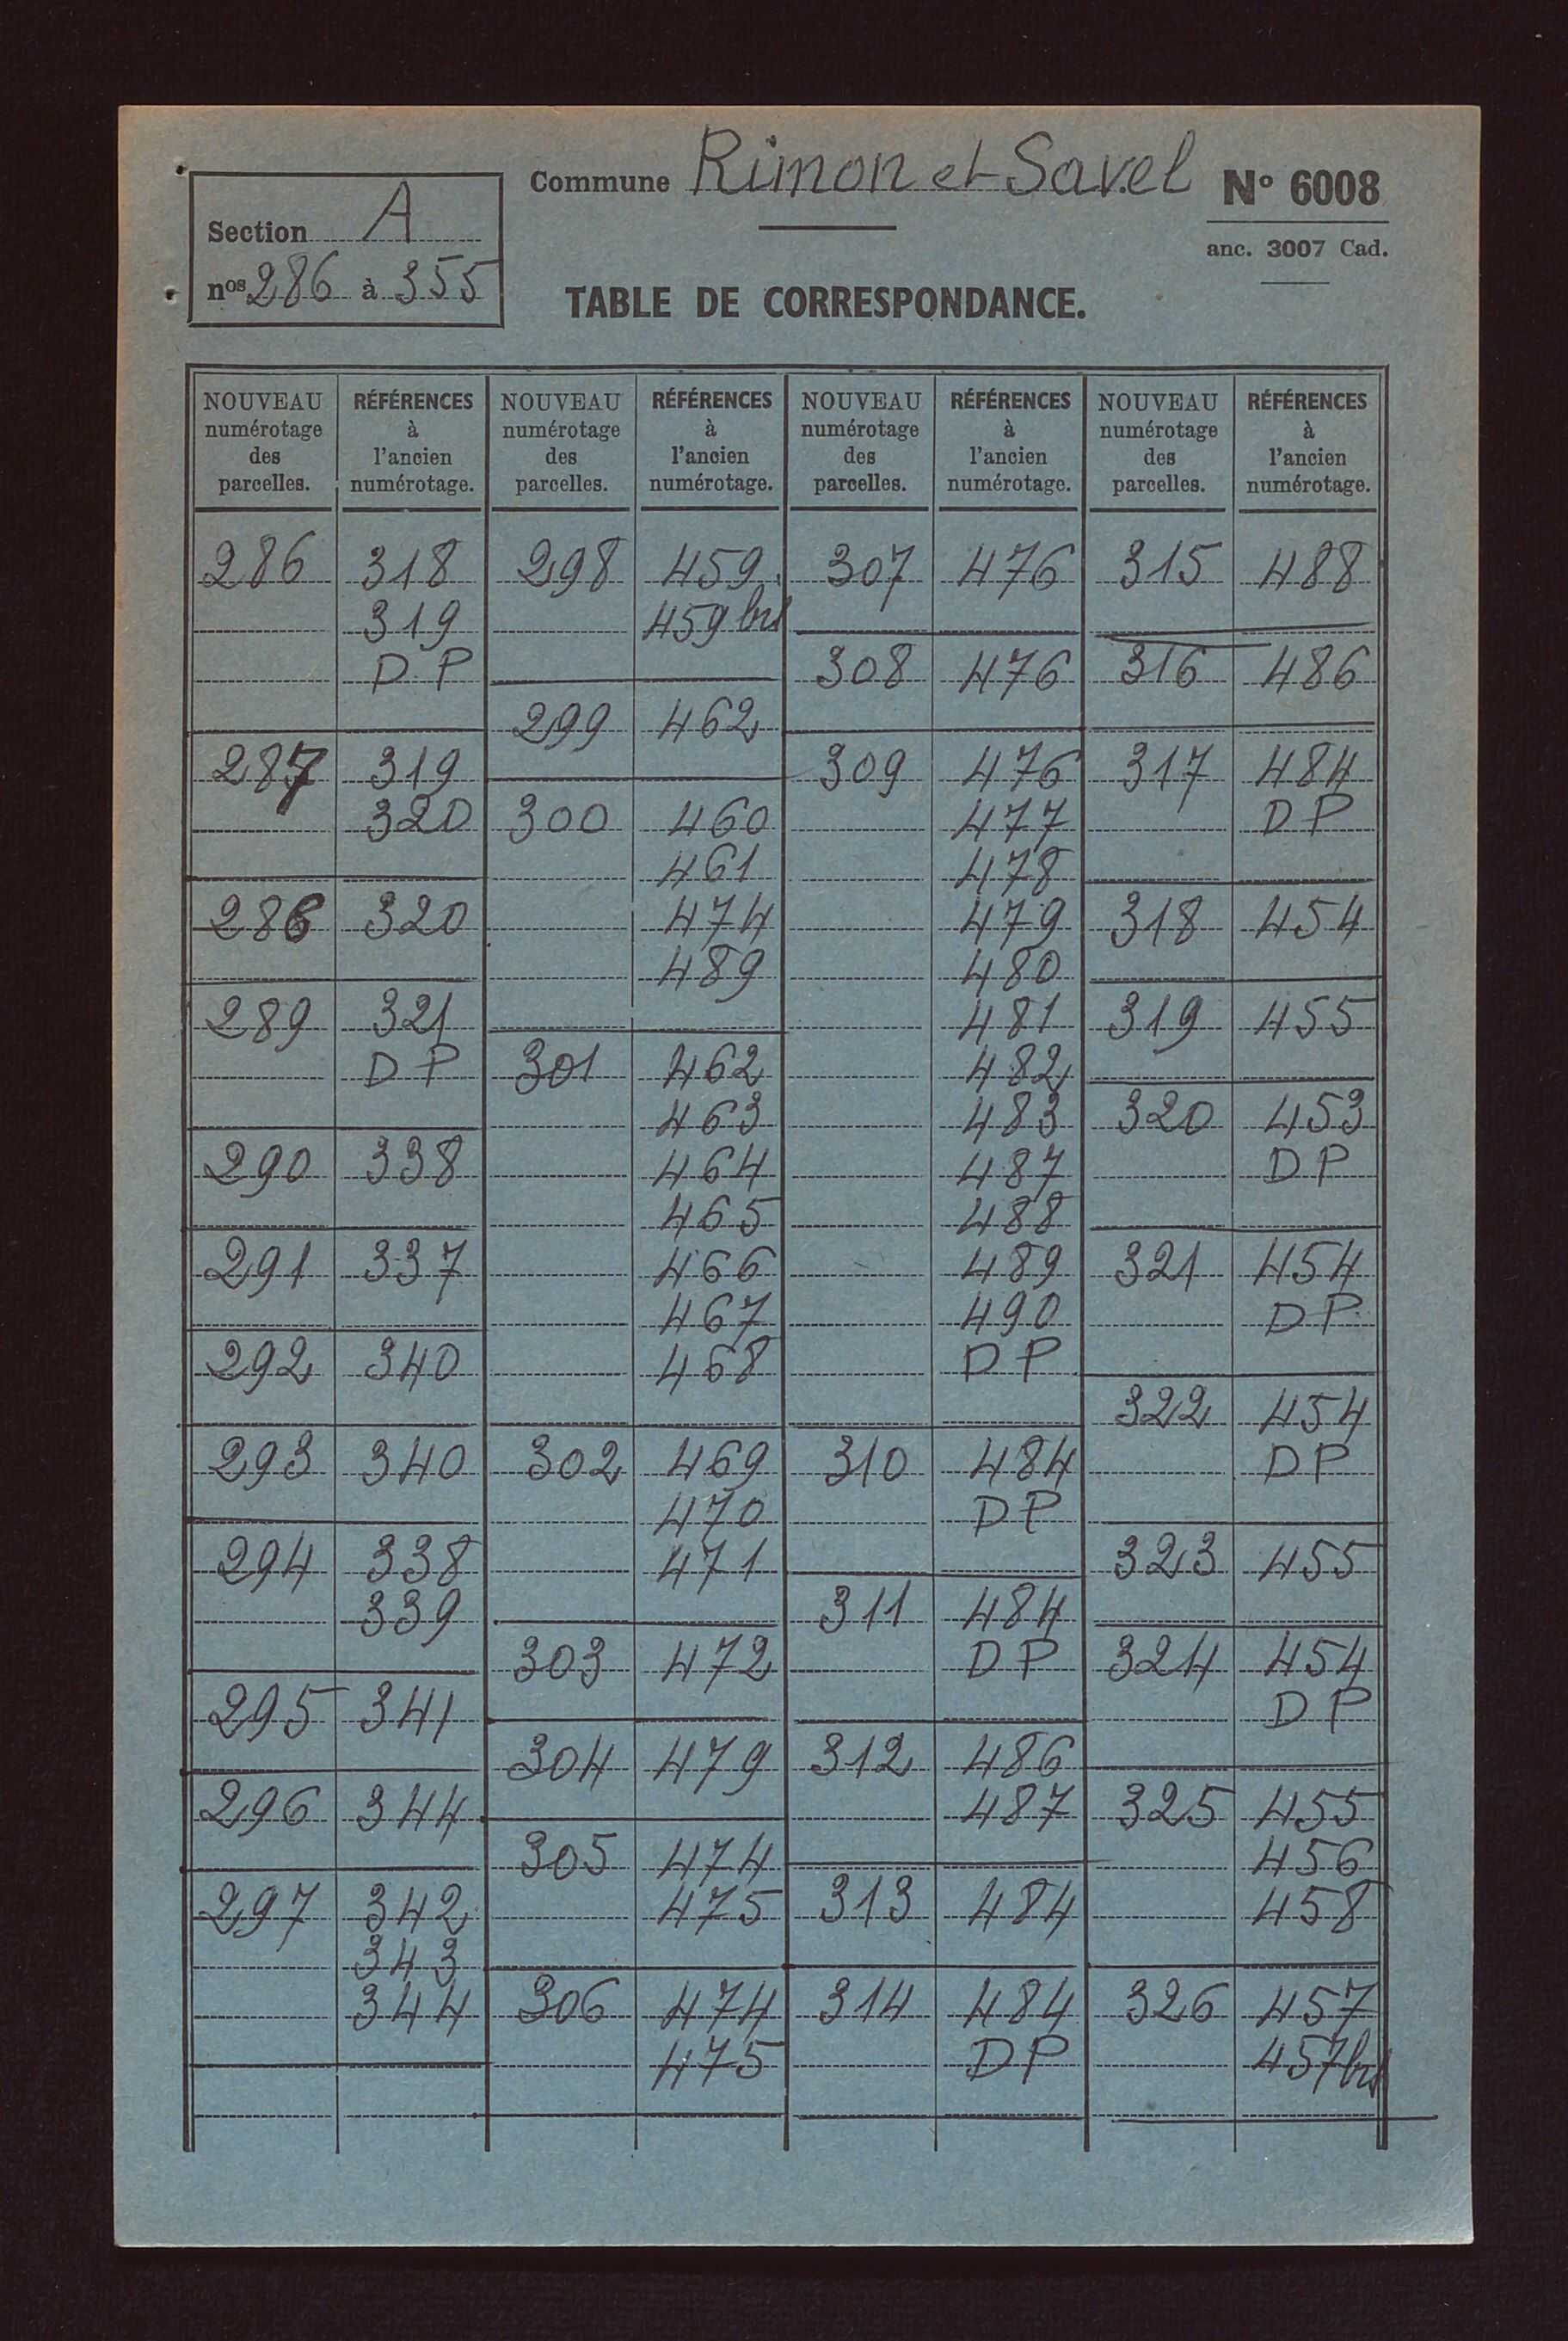 Section A
nos 286 à 355
Commune Rimon et Savel
N° 6008
anc. 3007 Cad.
TABLE DE CORRESPONDANCE.
NOUVEAU numérotage des parcelles. RÉFÉRENCES à l'ancien numérotage.
286 318
319
D P
287 319
320
288 320
289 321
D P
290 338
291 337
292 340
293 340
294 338
339
295 341
296 344
297 342
343
344
NOUVEAU numérotage des parcelles. RÉFÉRENCES à l'ancien numérotage.
298 459
459 bis
299 462
300 460
461
474
489
301 462
463
464
465
466
467
468
302 469
470
471
303 472
304 479
305 474
475
306 474
475
NOUVEAU numérotage des parcelles. RÉFÉRENCES à l'ancien numérotage.
307 476
308 476
309 476
477
478
479
480
481
482
483
487
488
489
490
D P
310 484
D P
311 484
D P
312 486
487
313 484
314 484
D P
NOUVEAU numérotage des parcelles. RÉFÉRENCES à l'ancien numérotage.
315 488
316 486
317 484
D P
318 454
319 455
320 453
D P
321 454
D P
322 454
D P
323 455
324 454
D P
325 455
456
458
326 457
457 bis